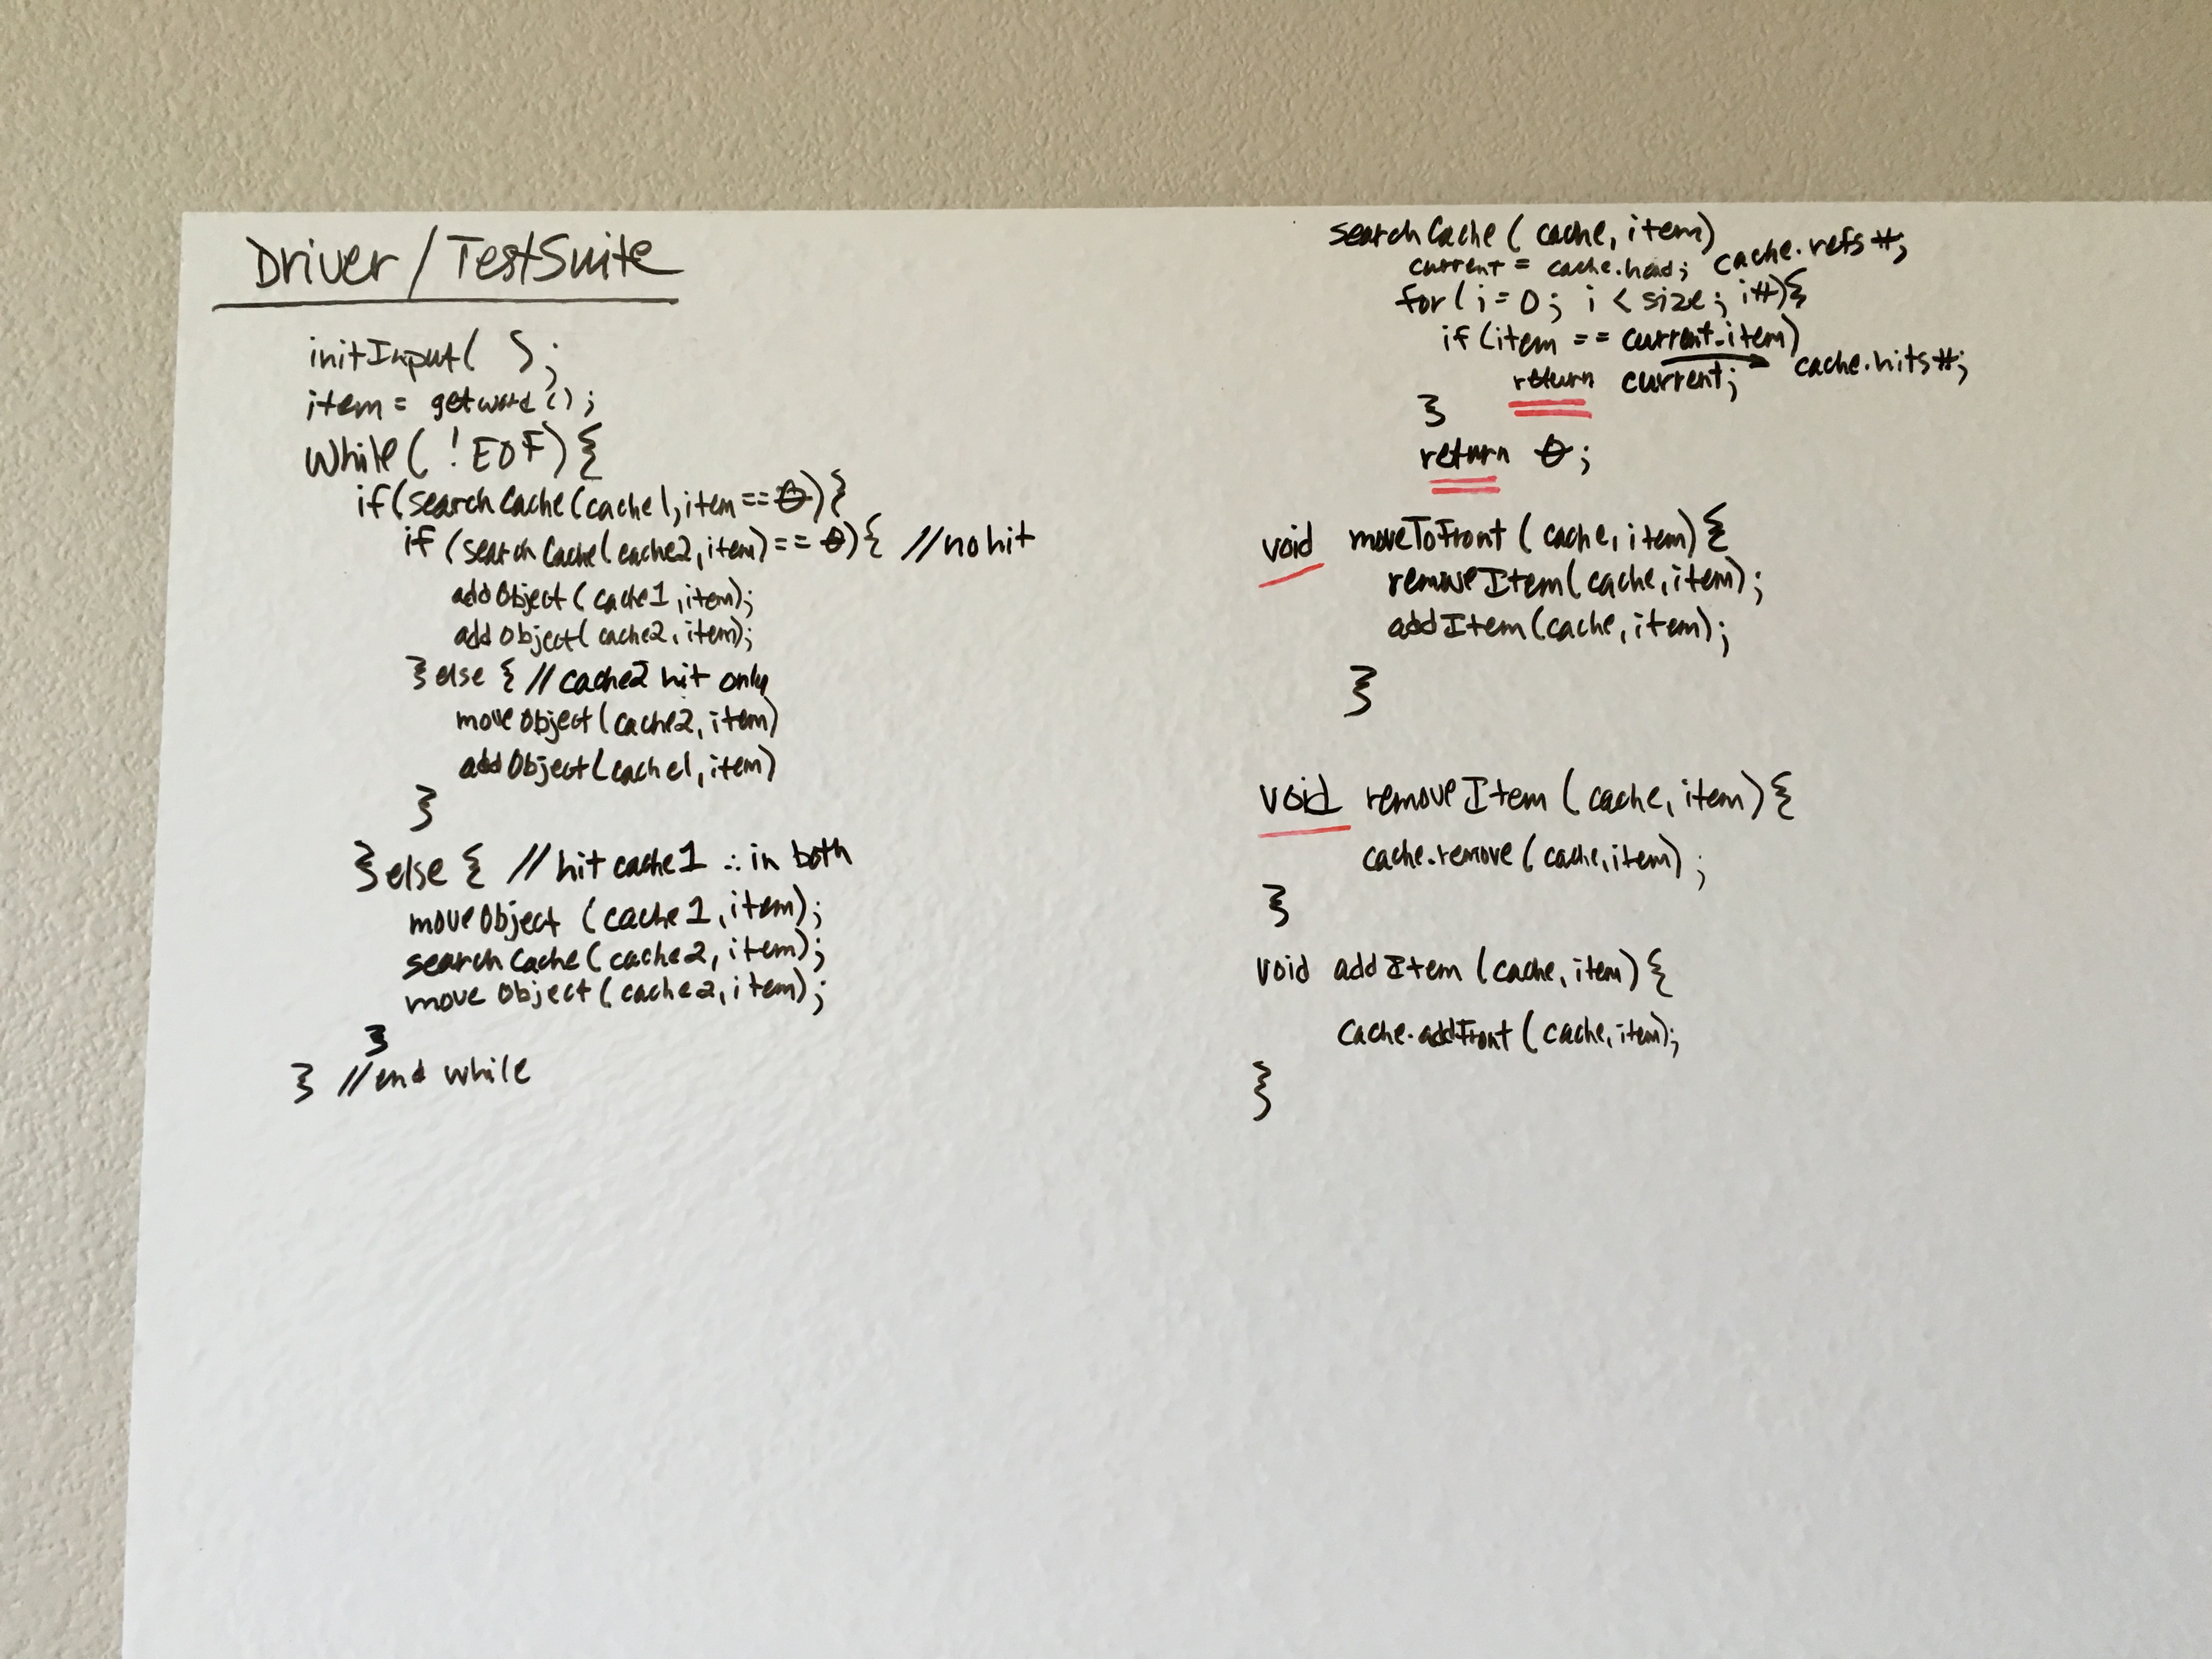 Driver/TestSuite
initInput( );
item = getword();
While( !EOF){
if(searchCache(cache1,item==0){
if (searchCache(cache2,item)==0){ //no hit
addObject(cache1,item);
addObject(cache2,item);
}else { //cache2 hit only
moveObject(cache2,item)
addObject(cache1,item)
}
}else { //hit cache1 ∴ in both
moveObject (cache1,item);
searchCache(cache2,item);
moveObject(cache2,item);
}
} //end while
searchCache( cache,item)
current = cache.head; cache.refs++;
for(i=0; i < size; i++){
if(item == current.item)
return current; cache.hits++;
}
return 0;
void moveToFront (cache,item){
removeItem(cache,item);
addItem(cache,item);
}
void removeItem (cache,item){
cache.remove(cache,item);
}
void addItem (cache,item){
Cache.addFront(cache,item);
}